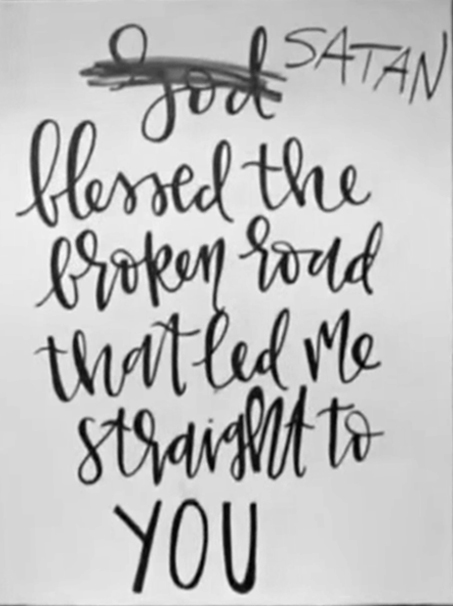 God SATAN
blessed the
broken road
that led me
straight to
YOU